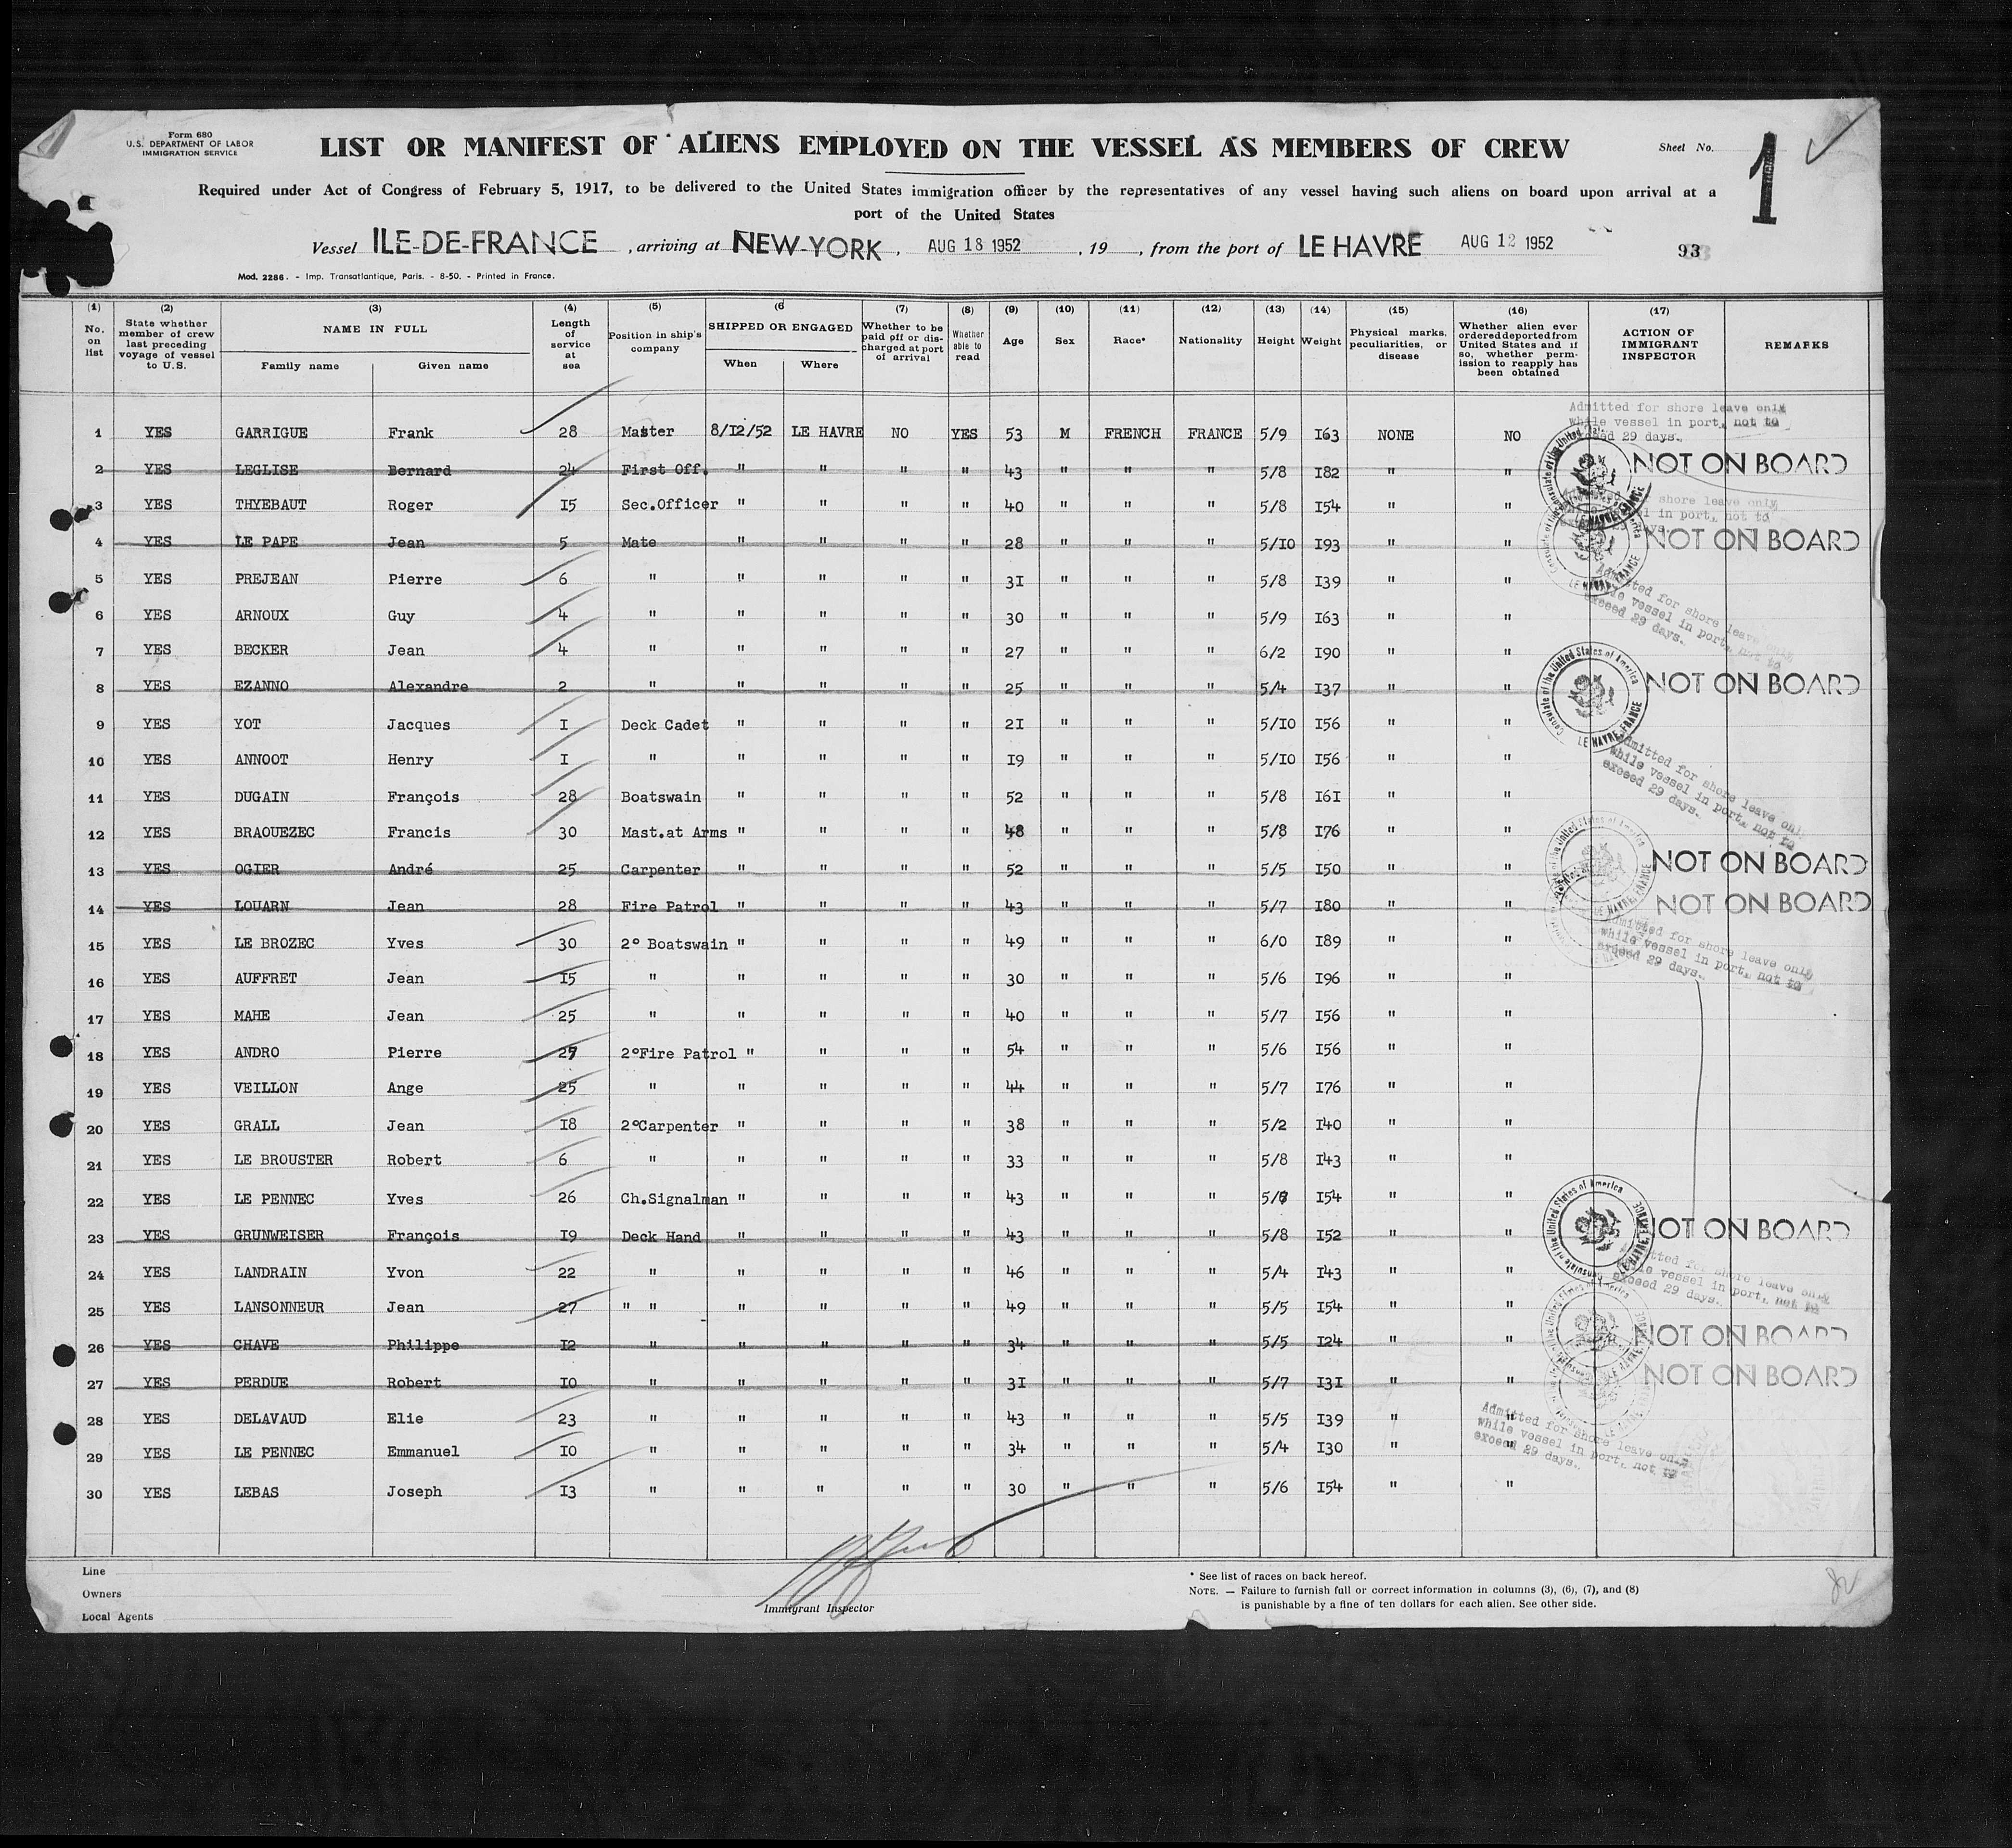 Form 680
U.S. DEPARTMENT OF LABOR
IMMIGRATION SERVICE
LIST OR MANIFEST OF ALIENS EMPLOYED ON THE VESSEL AS MEMBERS OF CREW
Sheet No. 1
Required under Act of Congress of February 5, 1917, to be delivered to the United States immigration officer by the representatives of any vessel having such aliens on board upon arrival at a
port of the United States
Vessel ILE-DE-FRANCE , arriving at NEW-YORK , AUG 18 1952 , 19 , from the port of LE HAVRE AUG 12 1952
93
Mod. 2286. - Imp. Transatlantique, Paris. - 8-50. - Printed in France.
(1) No. on list (2) State whether member of crew last preceding voyage of vessel to U.S. (3) NAME IN FULL Family name Given name (4) Length of service at sea (5) Position in ship's company (6 SHIPPED OR ENGAGED When Where (7) Whether to be paid off or discharged at port of arrival (8) Whether able to read (9) Age (10) Sex (11) Race* (12) Nationality (13) Height (14) Weight (15) Physical marks, peculiarities, or disease (16) Whether alien ever ordered deported from United States and if so, whether permission to reapply has been obtained (17) ACTION OF IMMIGRANT INSPECTOR REMARKS
Admitted for shore leave only
while vessel in port, not to
exceed 29 days.
1 YES GARRIGUE Frank 28 Master 8/I2/52 LE HAVRE NO YES 53 M FRENCH FRANCE 5/9 I63 NONE NO
2 YES LEGLISE Bernard 24 First Off. " " " " 43 " " " 5/8 I82 " " NOT ON BOARD
3 YES THYEBAUT Roger I5 Sec.Officer " " " " 40 " " " 5/8 I54 " " shore leave only
4 YES LE PAPE Jean 5 Mate " " " " 28 " " " 5/I0 I93 " " NOT ON BOARD
5 YES PREJEAN Pierre 6 " " " " " 3I " " " 5/8 I39 " "
6 YES ARNOUX Guy 4 " " " " " 30 " " " 5/9 I63 " "
7 YES BECKER Jean 4 " " " " " 27 " " " 6/2 I90 " "
8 YES EZANNO Alexandre 2 " " " " " 25 " " " 5/4 I37 " " NOT ON BOARD
9 YES YOT Jacques I Deck Cadet " " " " 2I " " " 5/I0 I56 " "
10 YES ANNOOT Henry I " " " " " I9 " " " 5/I0 I56 " "
11 YES DUGAIN François 28 Boatswain " " " " 52 " " " 5/8 I6I " "
12 YES BRAOUEZEC Francis 30 Mast.at Arms " " " " 48 " " " 5/8 I76 " "
13 YES OGIER André 25 Carpenter " " " " 52 " " " 5/5 I50 " " NOT ON BOARD
14 YES LOUARN Jean 28 Fire Patrol " " " " 43 " " " 5/7 I80 " " NOT ON BOARD
15 YES LE BROZEC Yves 30 2° Boatswain " " " " 49 " " " 6/0 I89 " "
16 YES AUFFRET Jean I5 " " " " " 30 " " " 5/6 I96 " "
17 YES MAHE Jean 25 " " " " " 40 " " " 5/7 I56 " "
18 YES ANDRO Pierre 27 2°Fire Patrol " " " " 54 " " " 5/6 I56 " "
19 YES VEILLON Ange 25 " " " " " 44 " " " 5/7 I76 " "
20 YES GRALL Jean I8 2°Carpenter " " " " 38 " " " 5/2 I40 " "
21 YES LE BROUSTER Robert 6 " " " " " 33 " " " 5/8 I43 " "
22 YES LE PENNEC Yves 26 Ch.Signalman " " " " 43 " " " I54 " "
23 YES GRUNWEISER François I9 Deck Hand " " " " 43 " " " 5/8 I52 " " NOT ON BOARD
24 YES LANDRAIN Yvon 22 " " " " " 46 " " " 5/4 I43 " "
25 YES LANSONNEUR Jean 27 " " " " " " 49 " " " 5/5 I54 " "
26 YES CHAVE Philippe I2 " " " " " 34 " " " 5/5 I24 " " NOT ON BOARD
27 YES PERDUE Robert I0 " " " " " 3I " " " 5/7 I3I " " NOT ON BOARD
28 YES DELAVAUD Elie 23 " " " " " 43 " " " 5/5 I39 " "
29 YES LE PENNEC Emmanuel I0 " " " " " 34 " " " 5/4 I30 " "
30 YES LEBAS Joseph I3 " " " " " 30 " " " 5/6 I54 " "
Admitted for shore leave only
while vessel in port, not to
exceed 29 days.
Consulate of the United States of America
LE HAVRE, FRANCE
Line
Owners
Local Agents
Immigrant Inspector
* See list of races on back hereof.
NOTE. — Failure to furnish full or correct information in columns (3), (6), (7), and (8)
is punishable by a fine of ten dollars for each alien. See other side.